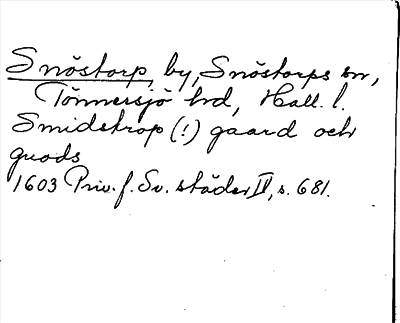 Snöstorp, by, Snöstorps sn,
Tönnersjö hd, Hall. l.
Smidstrop (!) gaard och
guods
1603 Priv. f. Sv. städer II, s. 681.